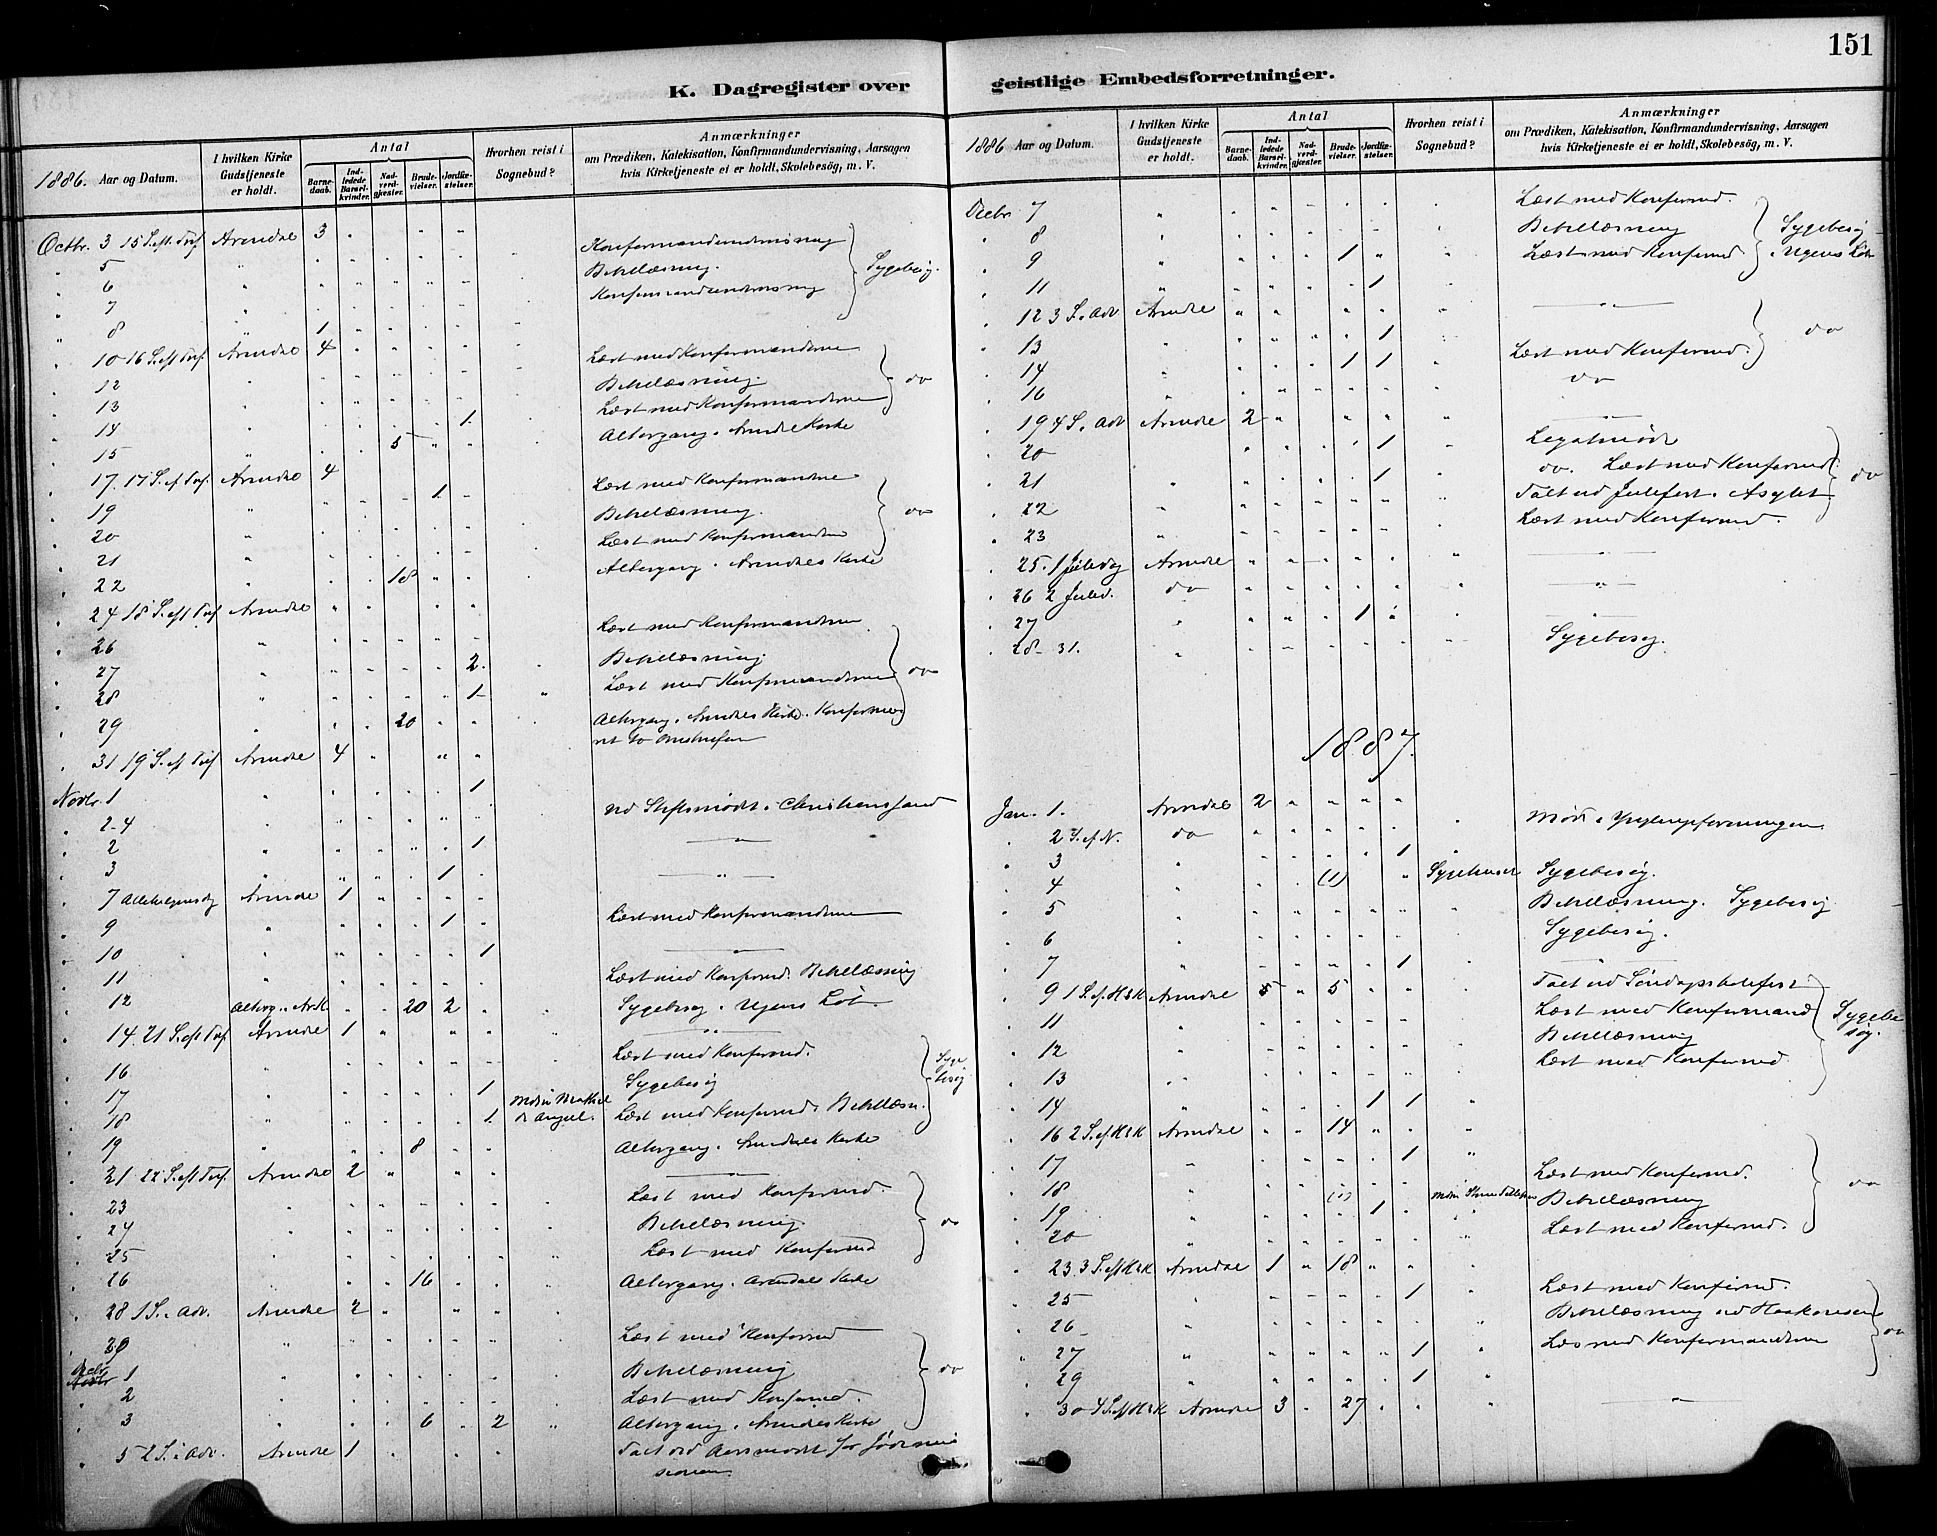 151
K. Dagregister over geistlige Embedsforretninger.
1886. Aar og Datum.
I hvilken Kirke Gudstjeneste er holdt.
Antal
Barnedaab.
Indledede Barselkvinder.
Nadverdgjester.
Brudevielser.
Jordfæstelser.
Hvorhen reist i Sognebud?
Anmærkninger
om Prædiken, Katekisation, Konfirmandundervisning, Aarsagen
hvis Kirketjeneste ei er holdt, Skolebesøg, m. V.
Octbr. 3 15 S. eft. Tref. Arendal 3
" 5 Konfirmandundervisning
" 6 Bibellæsning. Sygebesøg.
" 7 Konfirmandundervisning
" 8 1
" 10 16 S. eft Tref. Arendal 4
" 12 Læst med Konfirmanderne
" 13 Bibellæsning. do
" 14 1. Læst med Konfirmanderne
" 15 5 Altergang i Arendals Kirke
" 17. 17 S. ef Tref. Arendal 4
" 19 1. Læst med Konfirmanderne
" 20 Bibellæsning. do
" 21 Læst med Konfirmanderne
" 22 18 Altergang i Arendals Kirke
" 24 18 S. eft Tref Arendal
" 26 Læst med Konfirmanderne
" 27 2. Bibellæsning. do
" 28 1 Læst med Konfirmanderne
" 29 20 Altergang i Arendals Kirke.
" 31 19 S. ef Tref Arendal 4
Novbr. 1 1
" 2-4 ved Stiftsmødet i Christianssand
" 2 1
" 3 1
" 7 Allehelgensdg Arendal 1
" 9 1 Læst med Konfirmanderne
" 10 1
" 11 Læst med Konfirmd. Bibellæsning
" 12 Alterg. i Ar.K. 20 2 Sygebesøg i Ugens Løb
" 14. 21 S. eft Tref. Arendal 1
" 16 Læst med Konfirmd. Sygebesøg
" 17 1 Sygebesøg
" 18 1. Læst med Konfirmd. Bibellæsn.
" 19 8 Altergang i Arendals Kirke
" 21 22 S. eft Tref. Arendal 2
" 23 Læst med Konfirmd.
" 24 Bibellæsning. do
" 25 Læst med Konfirmd
" 26 16 Altergang i Arendals Kirke
" 28 1 S. i Adv. Arendal 2
" 30 Læst med Konfirmd
Decbr 1 Bibellæsning do
" 2 Læst med Konfirmd.
" 3 6 2 Altergang i Arendals Kirke
" 5 2 S. i Adv. Arendal 1 Talt ved Aarsmødet for Jødemissionen
1886 Aar og Datum.
I hvilken Kirke Gudstjeneste er holdt.
Antal
Barnedaab.
Indledede Barselkvinder.
Nadverdgjester.
Brudevielser.
Jordfæstelser.
Hvorhen reist i Sognebud?
Anmærkninger
om Prædiken, Katekisation, Konfirmandundervisning, Aarsagen
hvis Kirketjeneste ei er holdt, Skolebesøg, m. V.
Decbr 7 Læst med Konfirmd.
" 8 Bibellæsning Sygebesøg
" 9 1 Læst med Konfirmd i Ugens Løb
" 11 1
" 12 3 S. i Adv Arendal
" 13 1 do
" 14 1 1 Læst med Konfirmd.
" 16 do
" 19 4 S. i Adv Arendal 2
" 20 1 Legatmøde
" 21 1 do. Læst med Konfirmd. do
" 22 Talt ved Julefest i Asylet
" 23 Læst med Konfirmd.
" 25. 1 Juledag Arendal
" 26 2 Juled. do
" 27 1
" 28-31. Sygebesøg.
1887.
Jan. 1. Arendal 2
" 2 S. ef N. do Møde i Ynglingeforeningen
" 3 1
" 4 (1) Sygehuset Sygebesøg.
" 5 Bibellæsning. Sygebesøg
" 6 Sygebesøg.
" 7 1
" 9 1 S. ef. H3K Arendal 5 5 Talt ved Søndagsskolefest
" 11 Læst med Konfirmand Sygebesøg.
" 12 Bibellæsning
" 13 Læst med Konfirmd
" 14 1 1
" 16 2 S. ef H3K Arendal 14
" 17 1
" 18 (1) Læst med Konfirmd. do
" 19 1 Bibellæsning
" 20 Læst med Konfirmd.
" 23. 3 S. eft H3K Arendal 1 18
" 25 1 Læst med Konfirmd.
" 26 Bibellæsning ved Haakonsen
" 27 1 Læst med Konfirmanderne do
" 29 1
" 30 4 S. eft H3K Arendal 3 27